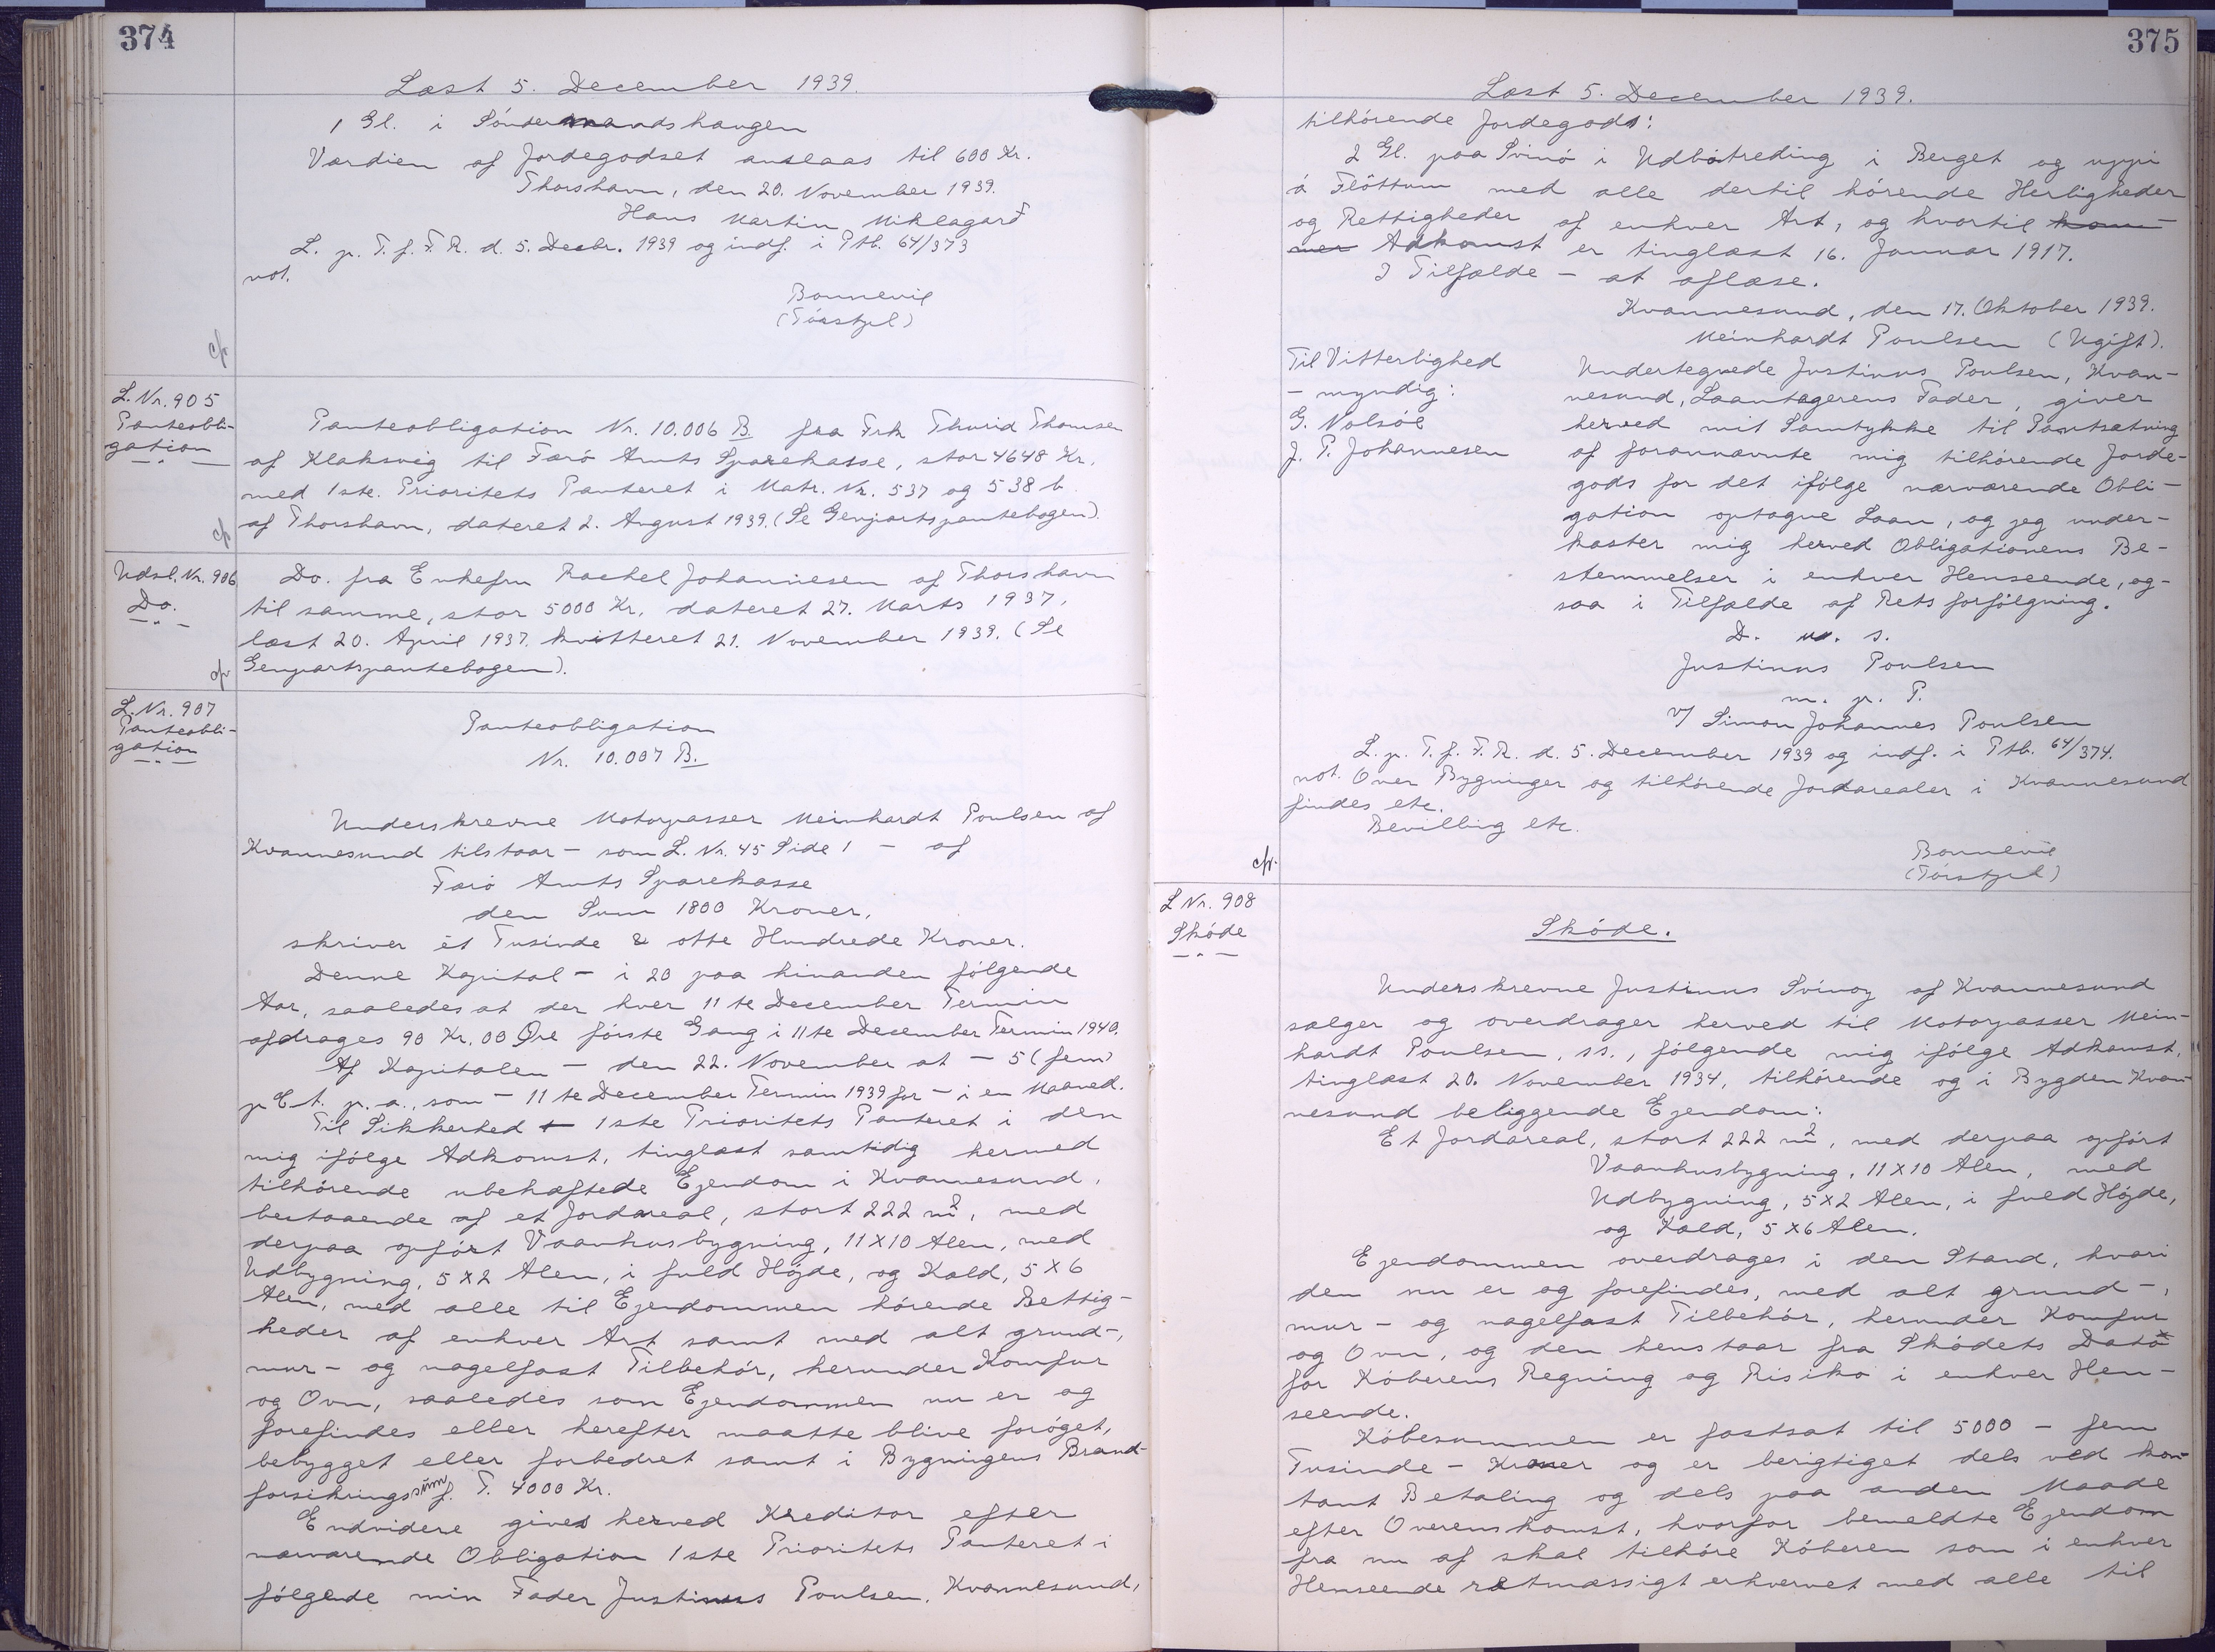 374
Læst 5. December 1939.
1 Gl. i Söndermandshaugen
Værdien af Jordegodset anslaas til 600 Kr.
Thorshavn, den 20. November 1939.
Hans Martin Miklagarð
L. p. T. f. F. R. d. 5. Decbr. 1939 og indf. i Ptb. 64/373
not.
Bonnevie
(Tórstzel)
cfr
L. Nr. 905
Panteobli-
gation
Panteobligation Nr. 10.006 B. fra Frk Thurid Thomsen
af Klaksvig til Færö Amts Sparekasse, stor 4648 Kr.
med 1ste. Prioritets Panteret i Matr. Nr. 537 og 538 b
af Thorshavn, dateret 2. August 1939. (Se Genpartspantebogen).
cfr
Udsl. Nr. 906
Do.
Do. fra Enkefru Rachel Johannesen af Thorshavn
til samme, stor 5000 Kr. dateret 27. Marts 1937,
læst 20. April 1937. kvitteret 21. November 1939. (Se
Genpartspantebogen).
cfr
L. Nr. 907
Panteobli-
gation
Panteobligation
Nr. 10.007 B.
Underskrevne Motorpasser Meinhardt Poulsen af
Kvannesund tilstaar – som L. Nr. 45 Side 1 – af
Færö Amts Sparekasse
den Sum 1800 Kroner,
skriver ét Tusinde & otte Hundrede Kroner.
Denne Kapital – i 20 paa hinanden fölgende
Aar, saaledes at der hver 11te December Termin
afdrages 90 Kr. 00 Øre förste Gang i 11te December Termin 1940.
Af Kapitalen – den 22. November at – 5 (fem)
p Ct. p. a., som – 11te December Termin 1939 for – i en Maaned.
Til Sikkerhed – 1ste Prioritets Panteret i den
mig ifölge Adkomst, tinglæst samtidig hermed
tilhörende ubehæftede Ejendom i Kvannesund,
bestaaende af et Jordareal, stort 222 m², med
derpaa opfört Vaanhusbygning, 11 X 10 Alen, med
Udbygning, 5 X 2 Alen, i fuld Højde, og Kald, 5 X 6
Alen, med alle til Ejendommen hörende Rettig-
heder af enhver Art samt med alt grund-,
mur- og nagelfast Tilbehör, herunder Komfur
og Ovn, saaledes som Ejendommen nu er og
forefindes eller herefter maatte blive foröget,
bebygget eller forbedret samt i Bygningens Brand-
forsikringssum f. T. 4000 Kr.
Endvidere gives herved Kreditor efter
nærværende Obligation 1ste Prioritets Panteret i
fölgende min Fader Justinus Poulsen, Kvannesund,
375
Læst 5. December 1939.
tilhörende Jordegods:
2 Gl. paa Svinö i Udbötreding i Berget og uppi
á Flöttum med alle dertil hörende Herligheder
og Rettigheder af enhver Art, og hvortil kom-
mer Adkomst er tinglæst 16. Januar 1917.
I Tilfælde – at aflæse.
Kvannesund, den 17. Oktober 1939.
Meinhardt Poulsen (Ugift).
Til Vitterlighed
– myndig:
G. Nolsöe
J. P. Johannesen
Undertegnede Justinus Poulsen, Kvan-
nesund, Laantagerens Fader, giver
herved mit Samtykke til Pantsætning
af forannævnte mig tilhörende Jorde-
gods for det ifölge nærværende Obli-
gation optagne Laan, og jeg under-
kaster mig herved Obligationens Be-
stemmelser i enhver Henseende, og-
saa i Tilfælde af Retsforfölgning.
D. u. s.
Justinus Poulsen
m. p. P.
v/ Simon Johannes Poulsen
L. p. T. f. F. R. d. 5. December 1939 og indf. i Ptb. 64/374.
not. Over Bygninger og tilhörende Jordarealer i Kvannesund
findes etc.
Bevilling etc.
Bonnevie
(Tórstzel)
cfr.
L Nr. 908
Sköde
Sköde.
Underskrevne Justinus Svinoy af Kvannesund
sælger og overdrager herved til Motorpasser Mein-
hardt Poulsen, ss., fölgende mig ifölge Adkomst,
tinglæst 20. November 1934, tilhörende og i Bygden Kvan-
nesund beliggende Ejendom:
Et Jordareal, stort 222 m², med derpaa opfört
Vaanhusbygning, 11 X 10 Alen, med
Udbygning, 5 X 2 Alen, i fuld Højde,
og Kald, 5 X 6 Alen.
Ejendommen overdrages i den Stand, hvori
den nu er og forefindes, med alt grund-,
mur- og nagelfast Tilbehör, herunder Komfur
og Ovn, og den henstaar fra Skødets Dato
for Köberens Regning og Risiko i enhver Hen-
seende.
Köbesummen er fastsat til 5000 – fem
Tusinde – Kroner og er berigtiget dels ved kon-
tant Betaling og dels paa anden Maade
efter Overenskomst, hvorfor bemeldte Ejendom
fra nu af skal tilhöre Köberen som i enhver
Henseende retmæssigt erhvervet med alle til